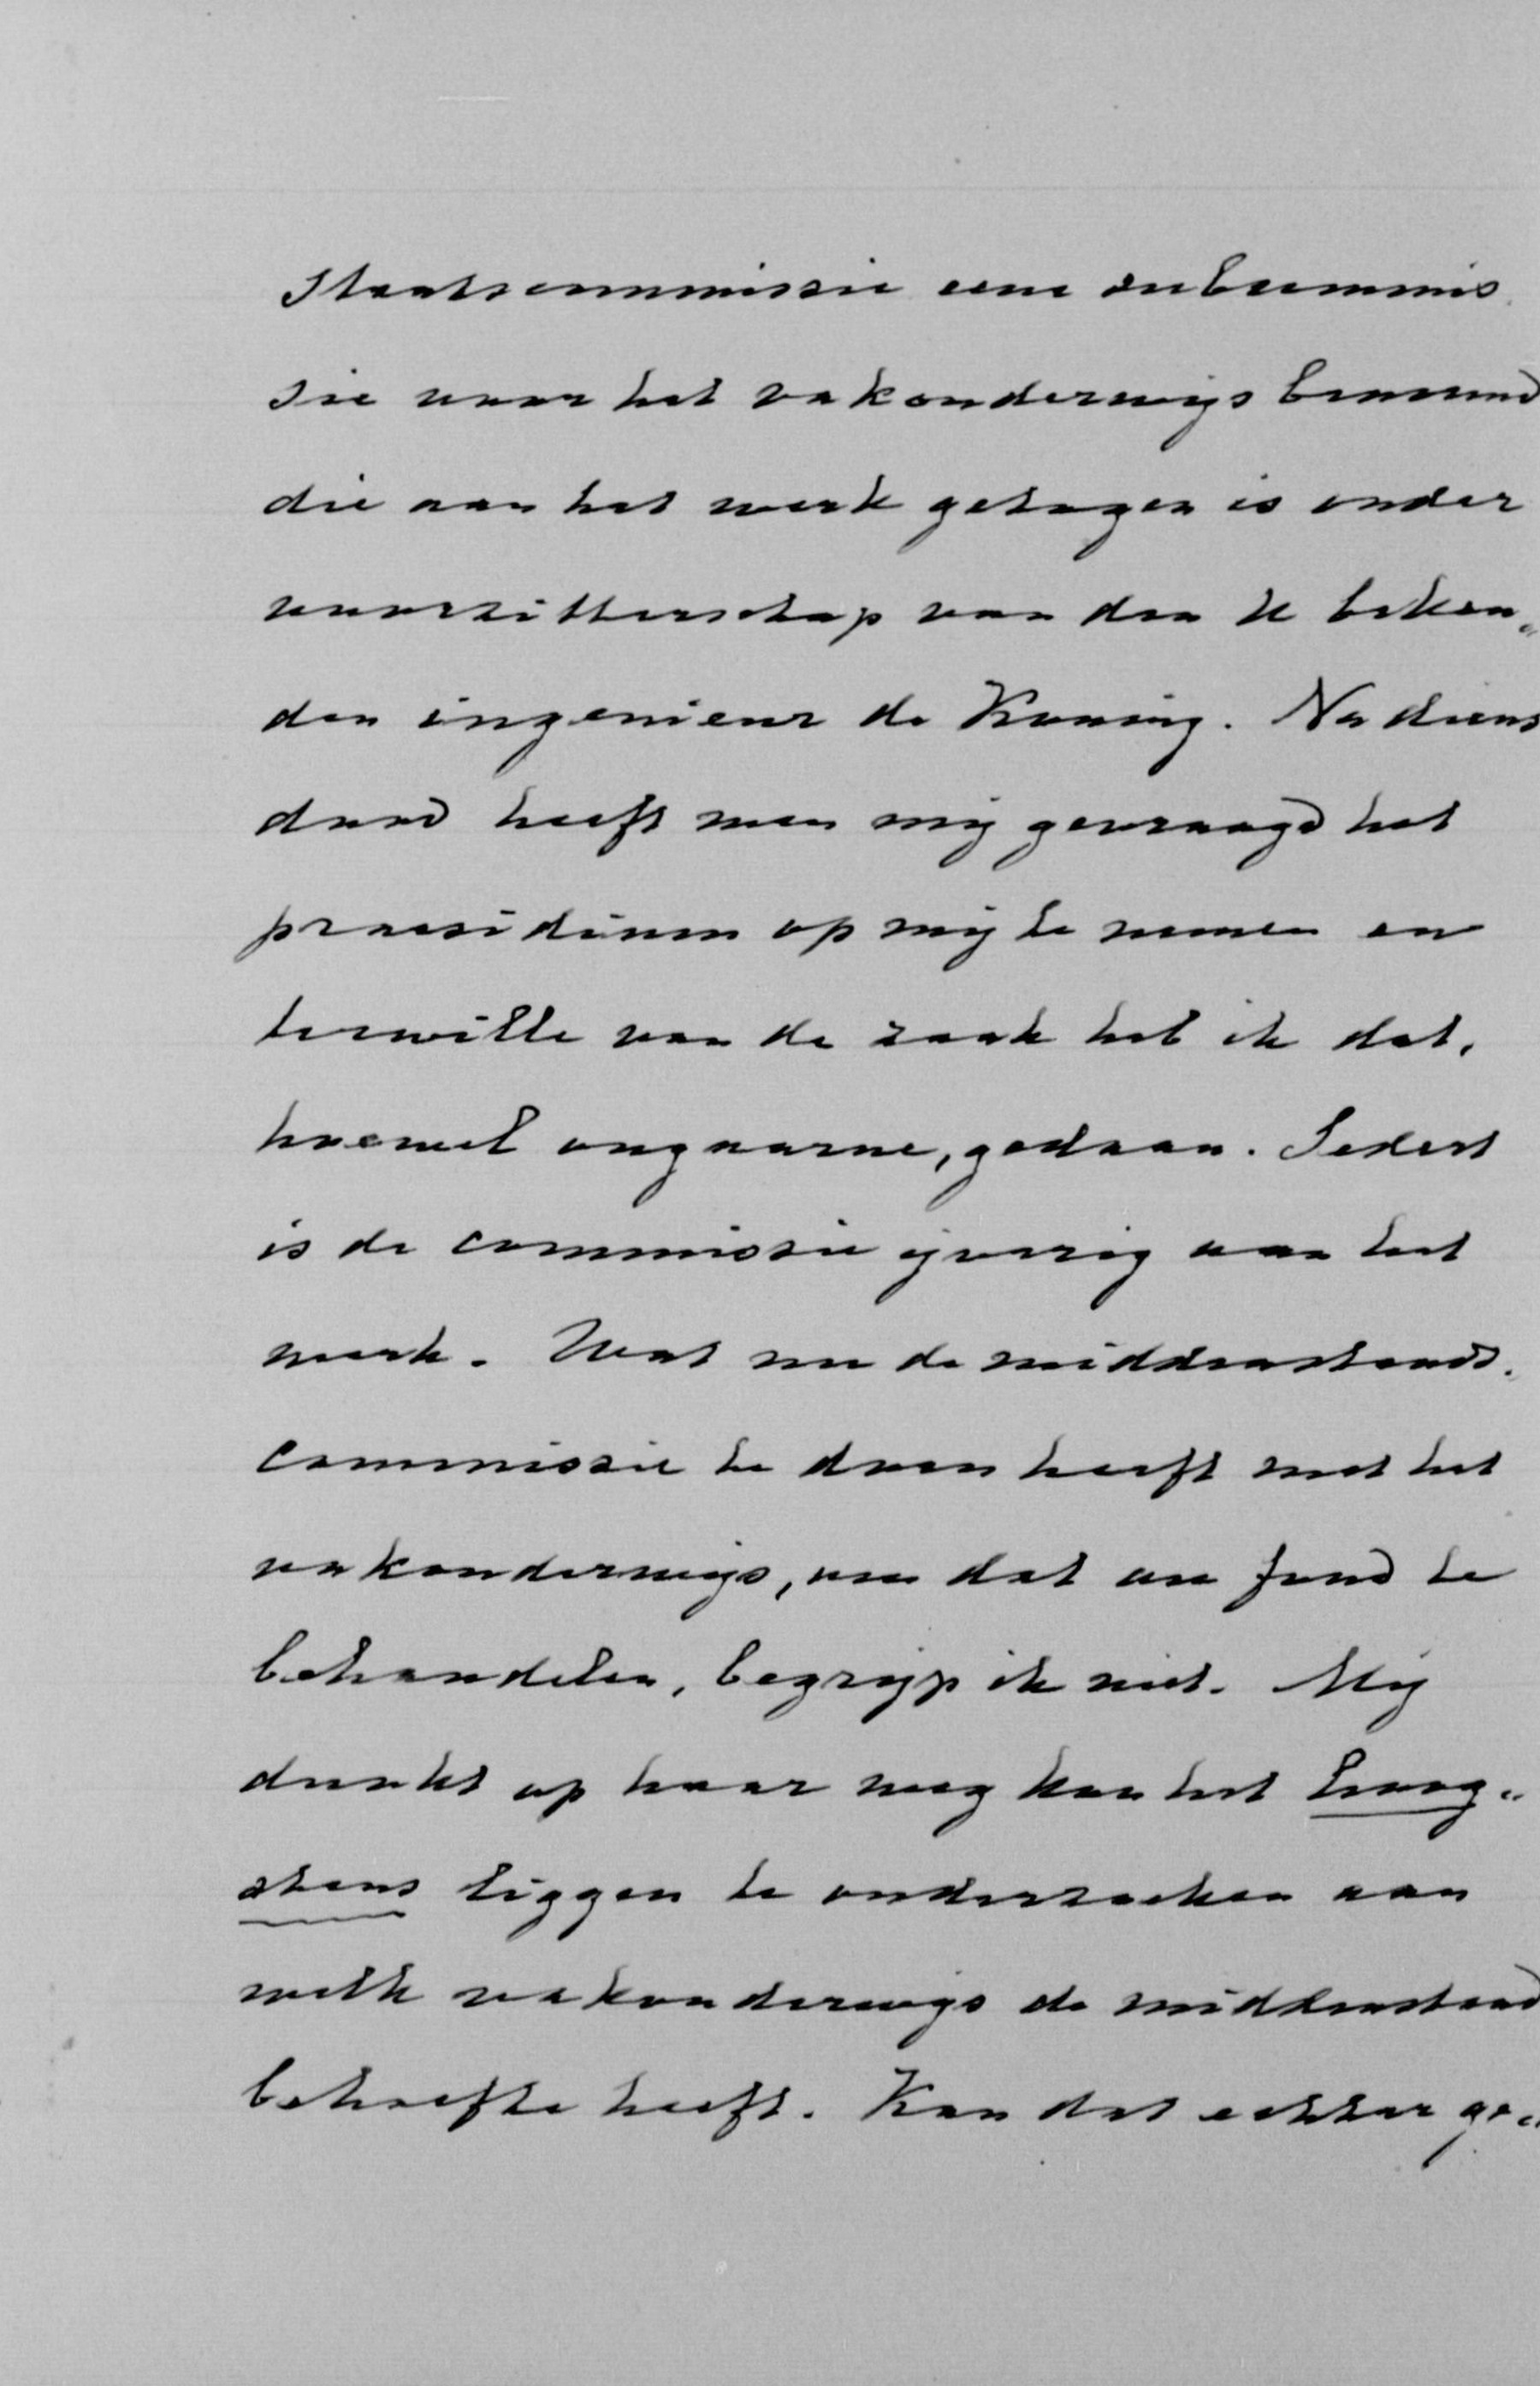 Staatscommissie eene subcommis
sie voor het vakonderwijs benoemd
die aan het werk getogen is onder
voorzitterschap van den U beken„
den ingenieur de Koning. Na diens
dood heeft men mij gevraagd het
praesidium op mij te nemen en
terwille van de zaak heb ik dat,
hoewel ongaarne, gedaan. Sedert
is de commissie ijverig aan het
werk. Wat nu de middenstands.
commissie te doen heeft met het
vakonderwijs, om dat au fond te
behandelen, begrijp ik niet. Mij
dunkt op haar weg kan het hoog„
stens liggen te onderzoeken aan
welk vakonderwijs de middenstand
behoefte heeft. Kan dat echter ge„